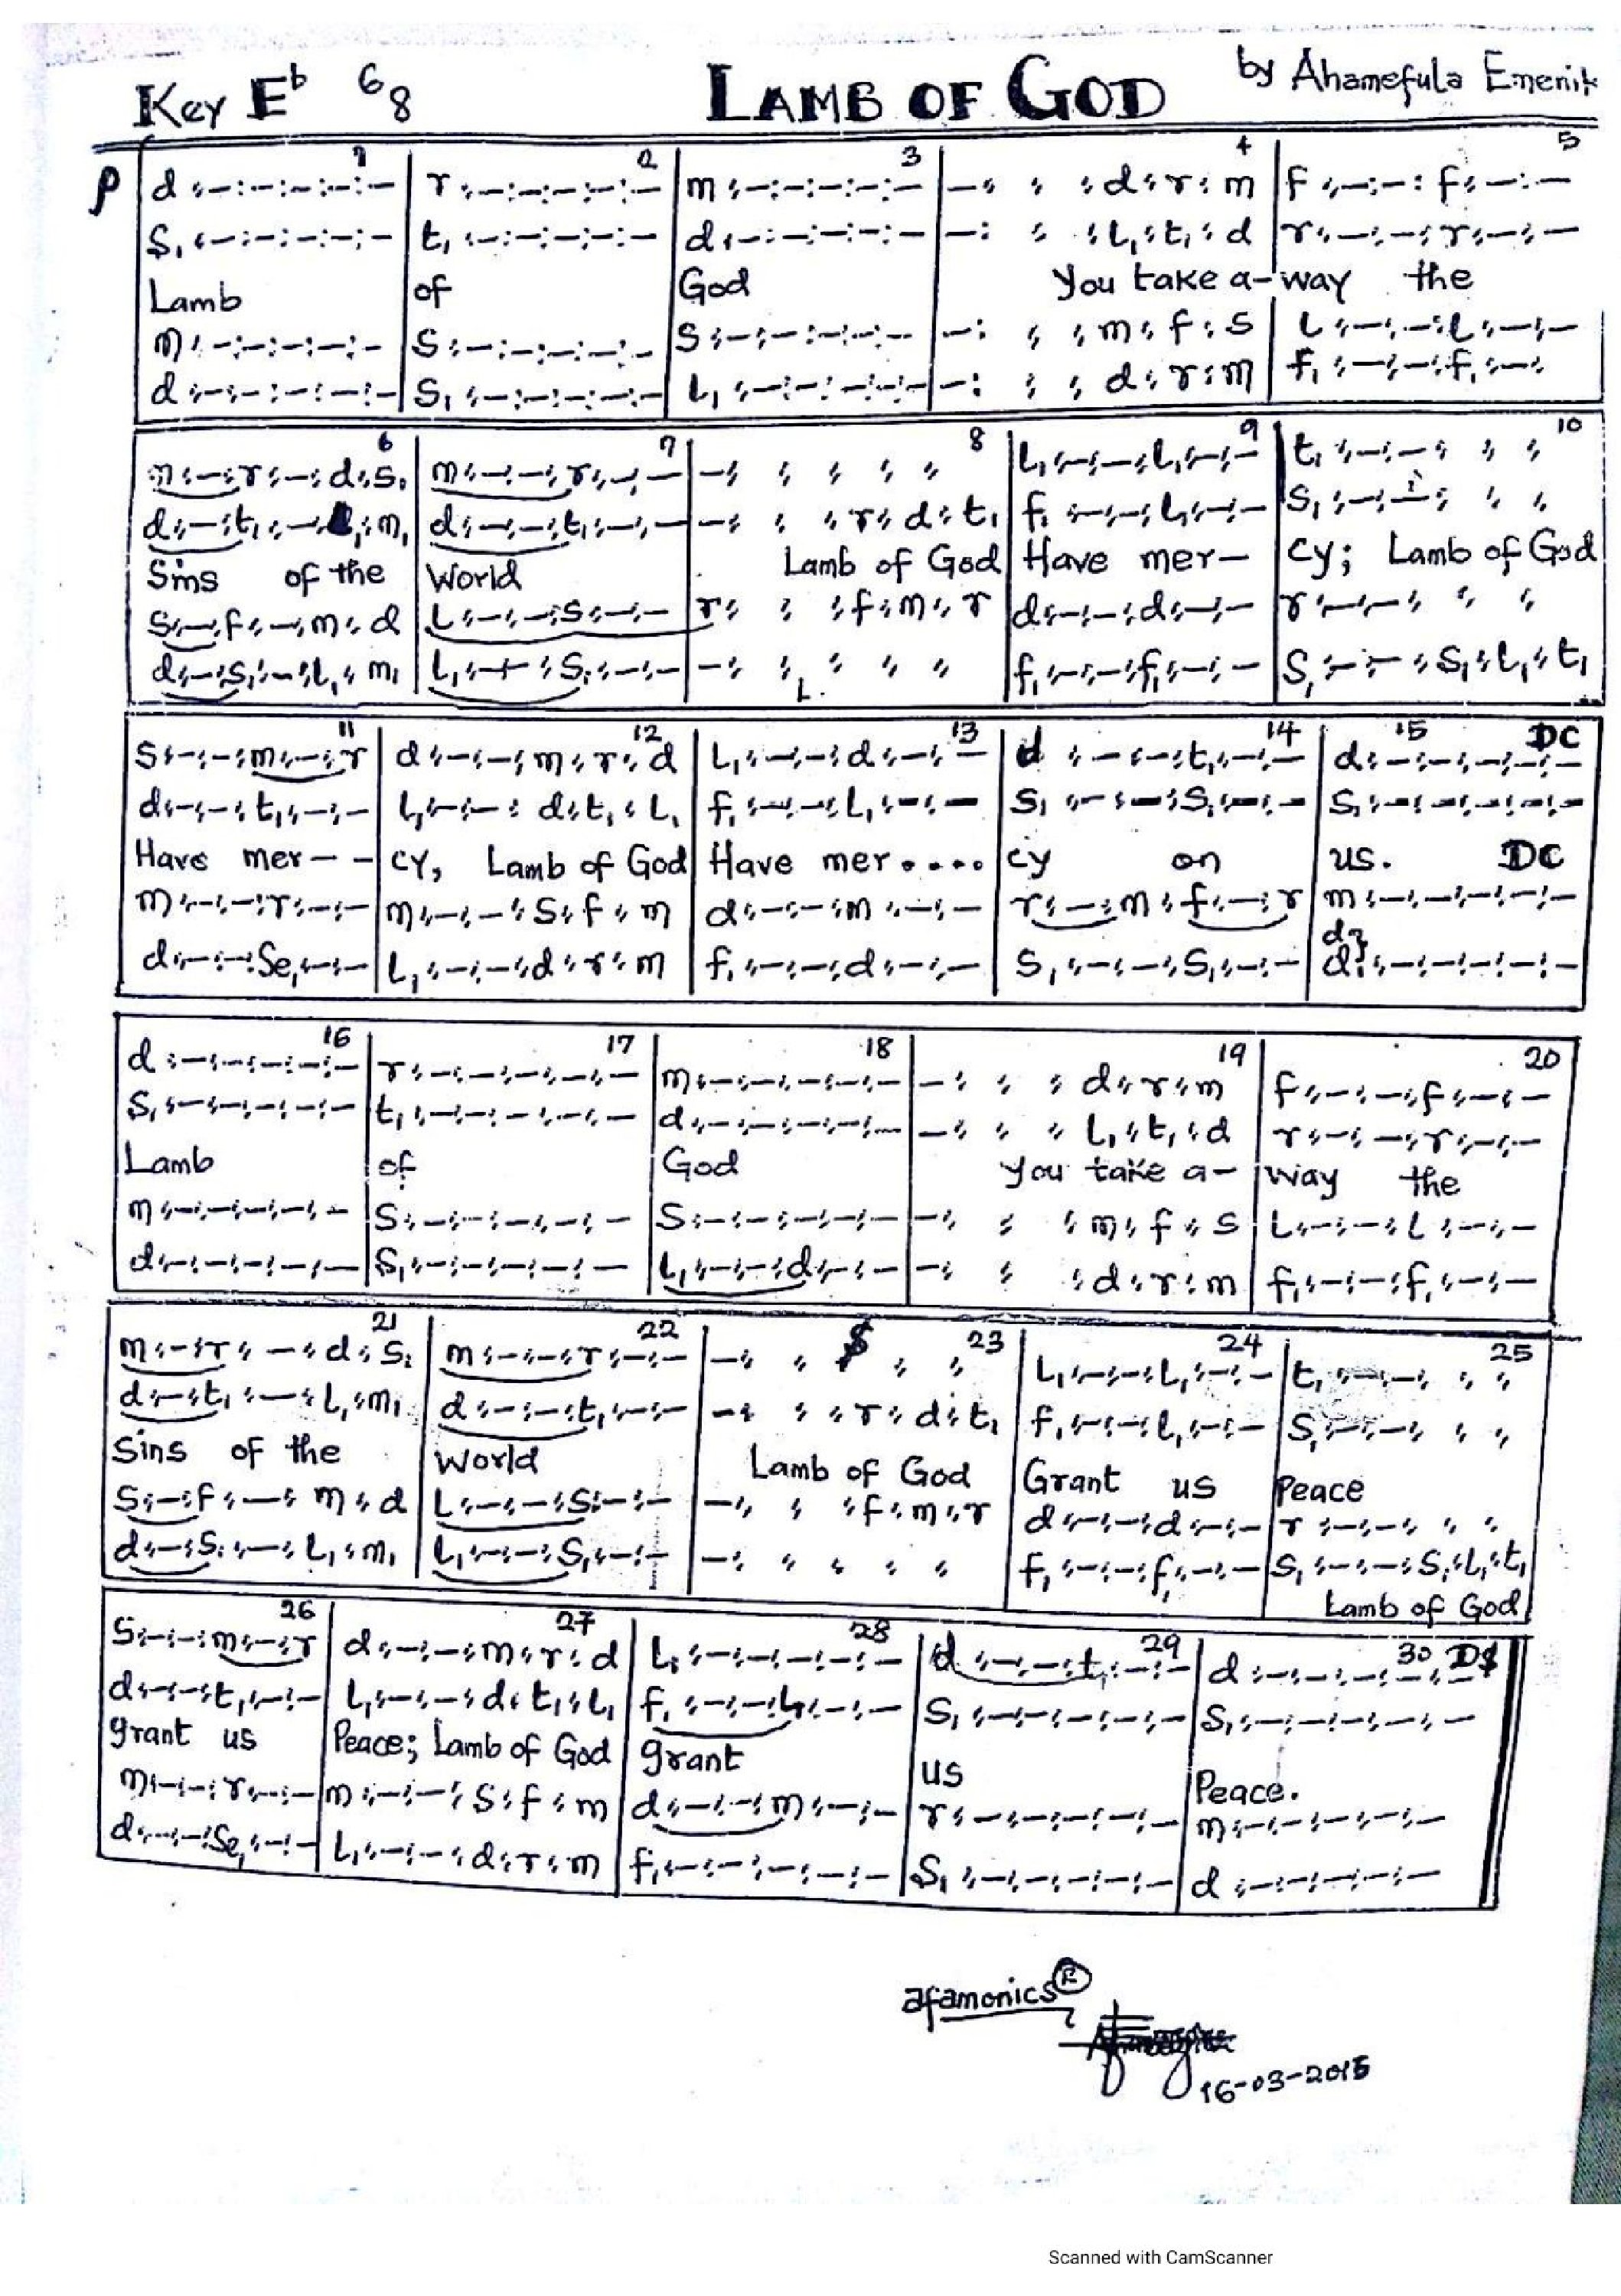 Key E♭ 6/8 LAMB OF GOD by Ahamefula Emenik
1 2 3 4 5
p d :-:-:-:-:- | r :-:-:-:-:- | m :-:-:-:-:- | -: : :d:r:m | f :-:-:f:-:-
s₁ :-:-:-:-:- | t₁ :-:-:-:-:- | d :-:-:-:-:- | -: : :l₁:t₁:d | r :-:-:r:-:-
Lamb of God You take a-way the
m :-:-:-:-:- | s :-:-:-:-:- | s :-:-:-:-:- | -: : :m:f:s | l :-:-:l:-:-
d :-:-:-:-:- | s₁ :-:-:-:-:- | l₁ :-:-:-:-:- | -: : :d:r:m | f₁ :-:-:f₁:-:-
6 7 8 9 10
m:-:r:-:d:s₁ | m:-:-:r:-:- | -: : : : : | l₁:-:-:l₁:-:- | t₁:-:-: : :
d:-:t₁:-:l₁:m₁ | d:-:-:t₁:-:- | -: : :r:d:t₁ | f₁:-:-:l₁:-:- | s₁:-:-: : :
Sins of the World Lamb of God Have mer- cy; Lamb of God
s:-:f:-:m:d | l:-:-:s:-:- | r: : :f:m:r | d:-:-:d:-:- | r:-:-: : :
d:-:s₁:-:l₁:m₁ | l₁:-:-:s₁:-:- | -: : : : : | f₁:-:-:f₁:-:- | s₁:-:-:s₁:l₁:t₁
11 12 13 14 15 DC
s:-:-:m:-:r | d:-:-:m:r:d | l₁:-:-:d:-:- | d:-:-:t₁:-:- | d:-:-:-:-:-
d:-:-:t₁:-:- | l₁:-:-:d:t₁:l₁ | f₁:-:-:l₁:-:- | s₁:-:-:s₁:-:- | s₁:-:-:-:-:-
Have mer-- cy, Lamb of God Have mer.... cy on us. DC
m:-:-:r:-:- | m:-:-:s:f:m | d:-:-:m:-:- | r:-:m:f:-:r | m:-:-:-:-:-
d:-:-:se₁:-:- | l₁:-:-:d:r:m | f₁:-:-:d:-:- | s₁:-:-:s₁:-:- | d d₁:-:-:-:-:-
16 17 18 19 20
d:-:-:-:-:- | r:-:-:-:-:- | m:-:-:-:-:- | -: : :d:r:m | f:-:-:f:-:-
s₁:-:-:-:-:- | t₁:-:-:-:-:- | d:-:-:-:-:- | -: : :l₁:t₁:d | r:-:-:r:-:-
Lamb of God You take a- way the
m:-:-:-:-:- | s:-:-:-:-:- | s:-:-:-:-:- | -: : :m:f:s | l:-:-:l:-:-
d:-:-:-:-:- | s₁:-:-:-:-:- | l₁:-:-:d:-:- | -: : :d:r:m | f₁:-:-:f₁:-:-
21 22 23 24 25
m:-:r:-:d:s₁ | m:-:-:r:-:- | -: : $ : : | l₁:-:-:l₁:-:- | t₁:-:-: : :
d:-:t₁:-:l₁:m₁ | d:-:-:t₁:-:- | -: : :r:d:t₁ | f₁:-:-:l₁:-:- | s₁:-:-: : :
Sins of the World Lamb of God Grant us Peace
s:-:f:-:m:d | l:-:-:s:-:- | -: : :f:m:r | d:-:-:d:-:- | r:-:-: : :
d:-:s₁:-:l₁:m₁ | l₁:-:-:s₁:-:- | -: : : : : | f₁:-:-:f₁:-:- | s₁:-:-:s₁:l₁:t₁
Lamb of God
26 27 28 29 30 D$
s:-:-:m:-:r | d:-:-:m:r:d | l₁:-:-:-:-:- | d:-:-:t₁:-:- | d:-:-:-:-:-
d:-:-:t₁:-:- | l₁:-:-:d:t₁:l₁ | f₁:-:-:l₁:-:- | s₁:-:-:-:-:- | s₁:-:-:-:-:-
grant us Peace; Lamb of God grant us Peace.
m:-:-:r:-:- | m:-:-:s:f:m | d:-:-:m:-:- | r:-:-:-:-:- | m:-:-:-:-:-
d:-:-:se₁:-:- | l₁:-:-:d:r:m | f₁:-:-:-:-:- | s₁:-:-:-:-:- | d:-:-:-:-:-
afamonics®
16-03-2015
Scanned with CamScanner